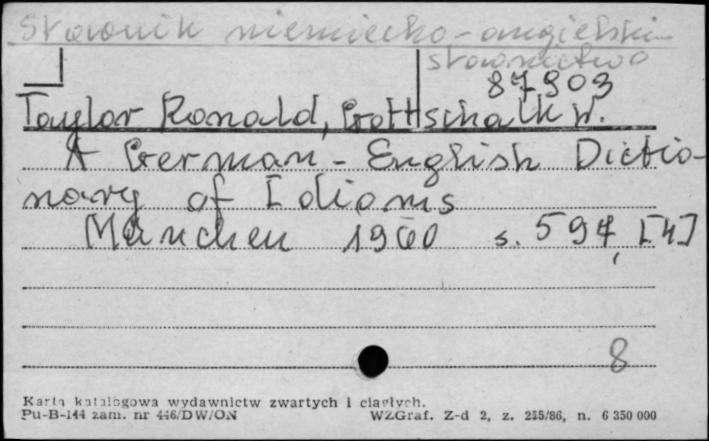 Słownik niemiecko-angielski
słownictwo
87903
Taylor Ronald, Gottschalk W.
A German-English Dictio-
nary of Idioms
München 1960 s. 594, [4]
8
Karta katalogowa wydawnictw zwartych i ciągłych.
Pu-B-144 zam. nr 446/DW/ON WZGraf. Z-d 2, z. 255/86, n. 6 350 000